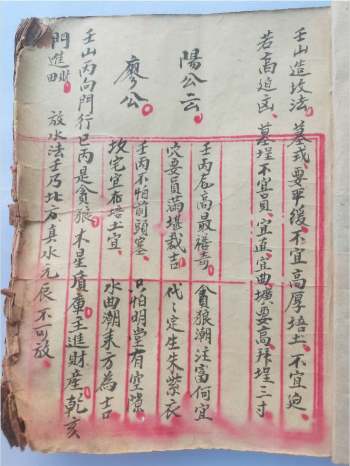 壬山造坟法、墓式、要平缓、不宜高厚培土、不宜迫
若高迫凶、墓埕不宜員、宜直、宜曲、壙要高拜埕三寸
陽公云、
壬丙龙高最禧奇、貪狼潮注富何宜
穴要員滿堪裁吉、代〻定生朱紫衣
廖公、
壬丙不怕前頭塞、只怕明堂有空隙
坟宅宜在培土宜、水曲潮来方為吉
壬山丙向門行巳丙是貪狼、木星, 庫王進財産、乾亥
門進財 放水法壬乃北方真水元辰不可放、